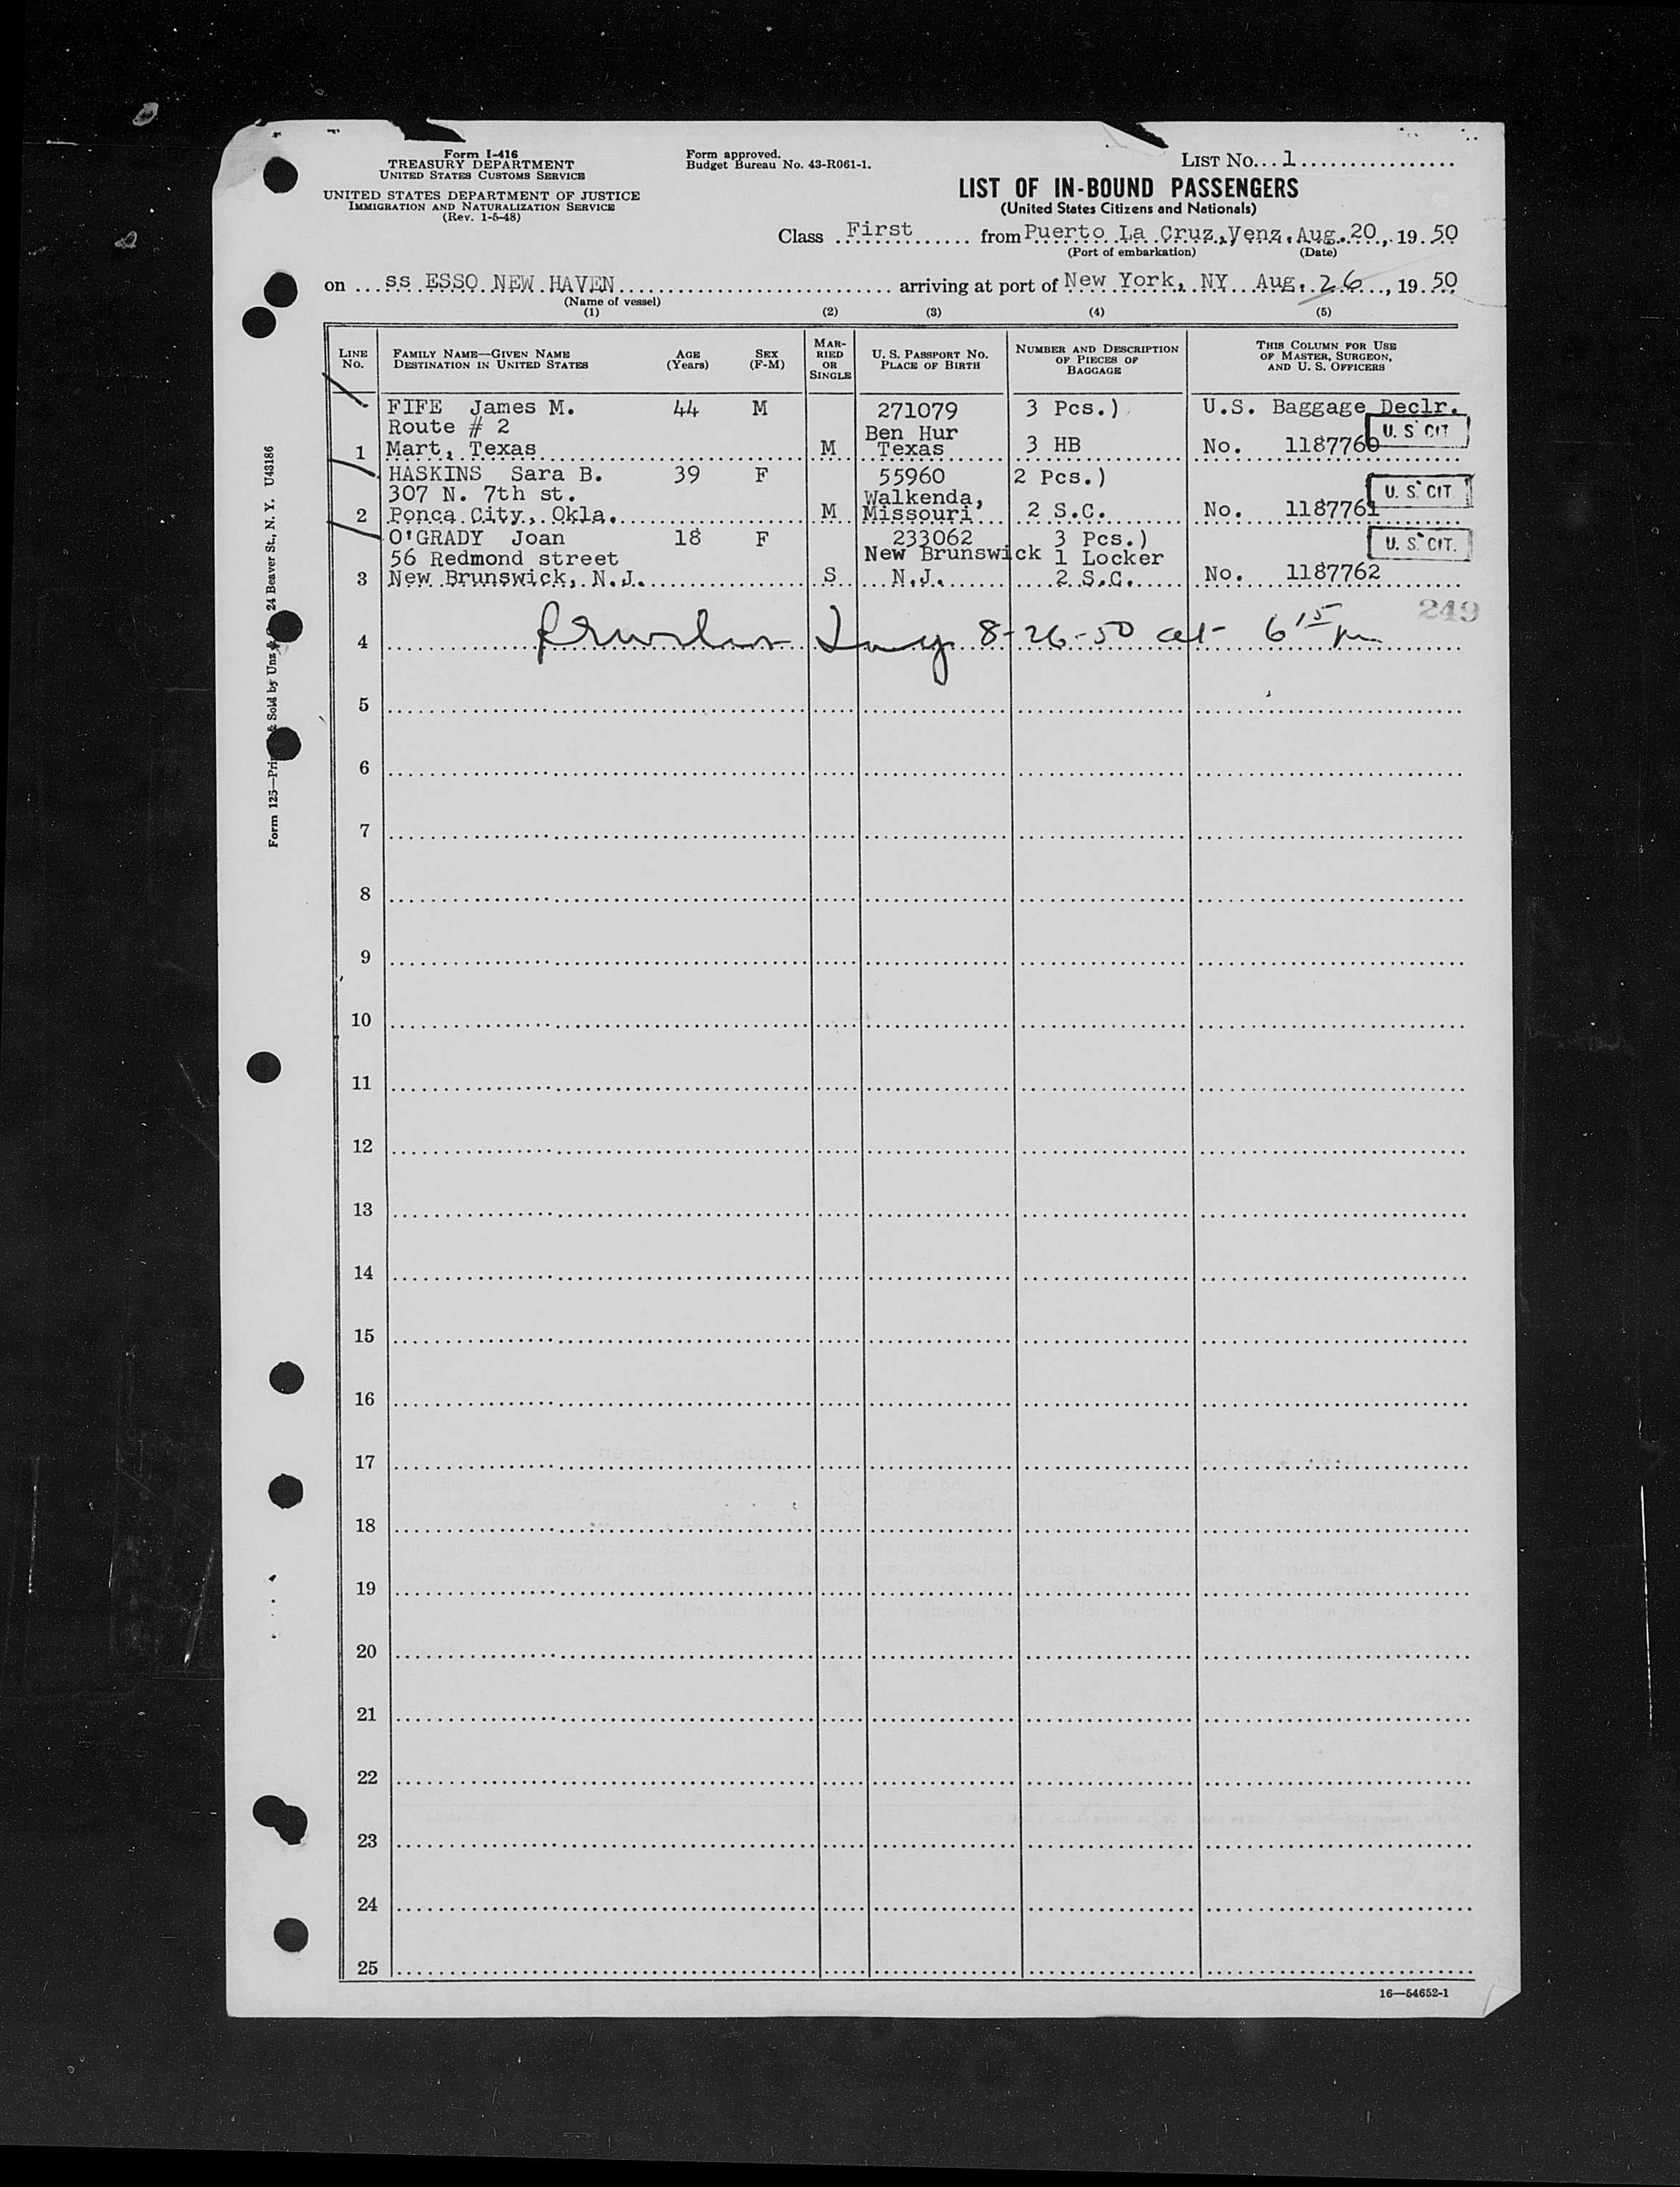 Form I-416
TREASURY DEPARTMENT
UNITED STATES CUSTOMS SERVICE
UNITED STATES DEPARTMENT OF JUSTICE
IMMIGRATION AND NATURALIZATION SERVICE
(Rev. 1-5-48)
Form approved.
Budget Bureau No. 43-R061-1.
LIST No. 1
LIST OF IN-BOUND PASSENGERS
(United States Citizens and Nationals)
Class First from Puerto La Cruz, Venz. Aug. 20, 19 50
(Port of embarkation) (Date)
on ss ESSO NEW HAVEN arriving at port of New York, NY Aug. 26, 19 50
(Name of vessel)
(1) (2) (3) (4) (5)
LINE No. FAMILY NAME—GIVEN NAME DESTINATION IN UNITED STATES AGE (Years) SEX (F-M) MARRIED OR SINGLE U. S. PASSPORT No. PLACE OF BIRTH NUMBER AND DESCRIPTION OF PIECES OF BAGGAGE THIS COLUMN FOR USE OF MASTER, SURGEON, AND U. S. OFFICERS
FIFE James M. 44 M 271079 3 Pcs.) U.S. Baggage Declr.
Route # 2 Ben Hur U. S. CIT.
1 Mart, Texas M Texas 3 HB No. 1187760
HASKINS Sara B. 39 F 55960 2 Pcs.)
307 N. 7th st. Walkenda, U. S. CIT.
2 Ponca City, Okla. M Missouri 2 S.C. No. 1187761
O'GRADY Joan 18 F 233062 3 Pcs.) U. S. CIT.
56 Redmond street New Brunswick 1 Locker
3 New Brunswick, N.J. S N.J. 2 S.C. No. 1187762
249
4 8-26-50 at 6 15 pm
5
6
7
8
9
10
11
12
13
14
15
16
17
18
19
20
21
22
23
24
25
16—54652-1
Form 125—Pri & Sold by Unz & 24 Beaver St., N. Y. U43186